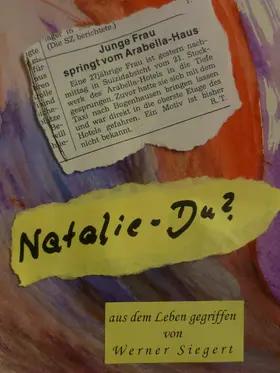 (Die SZ berichtete.)
Junge Frau
springt vom Arabella-Haus
Eine 27jährige Frau ist gestern nach-
mittag in Suizidabsicht vom 21. Stock-
werk des Arabella-Hotels in die Tiefe
gesprungen. Zuvor hatte sie sich mit dem
Taxi nach Bogenhausen bringen lassen
und war direkt in die oberste Etage des
Hotels gefahren. Ein Motiv ist bisher
nicht bekannt. R. T.
Natalie - Du?
aus dem Leben gegriffen
von
Werner Siegert